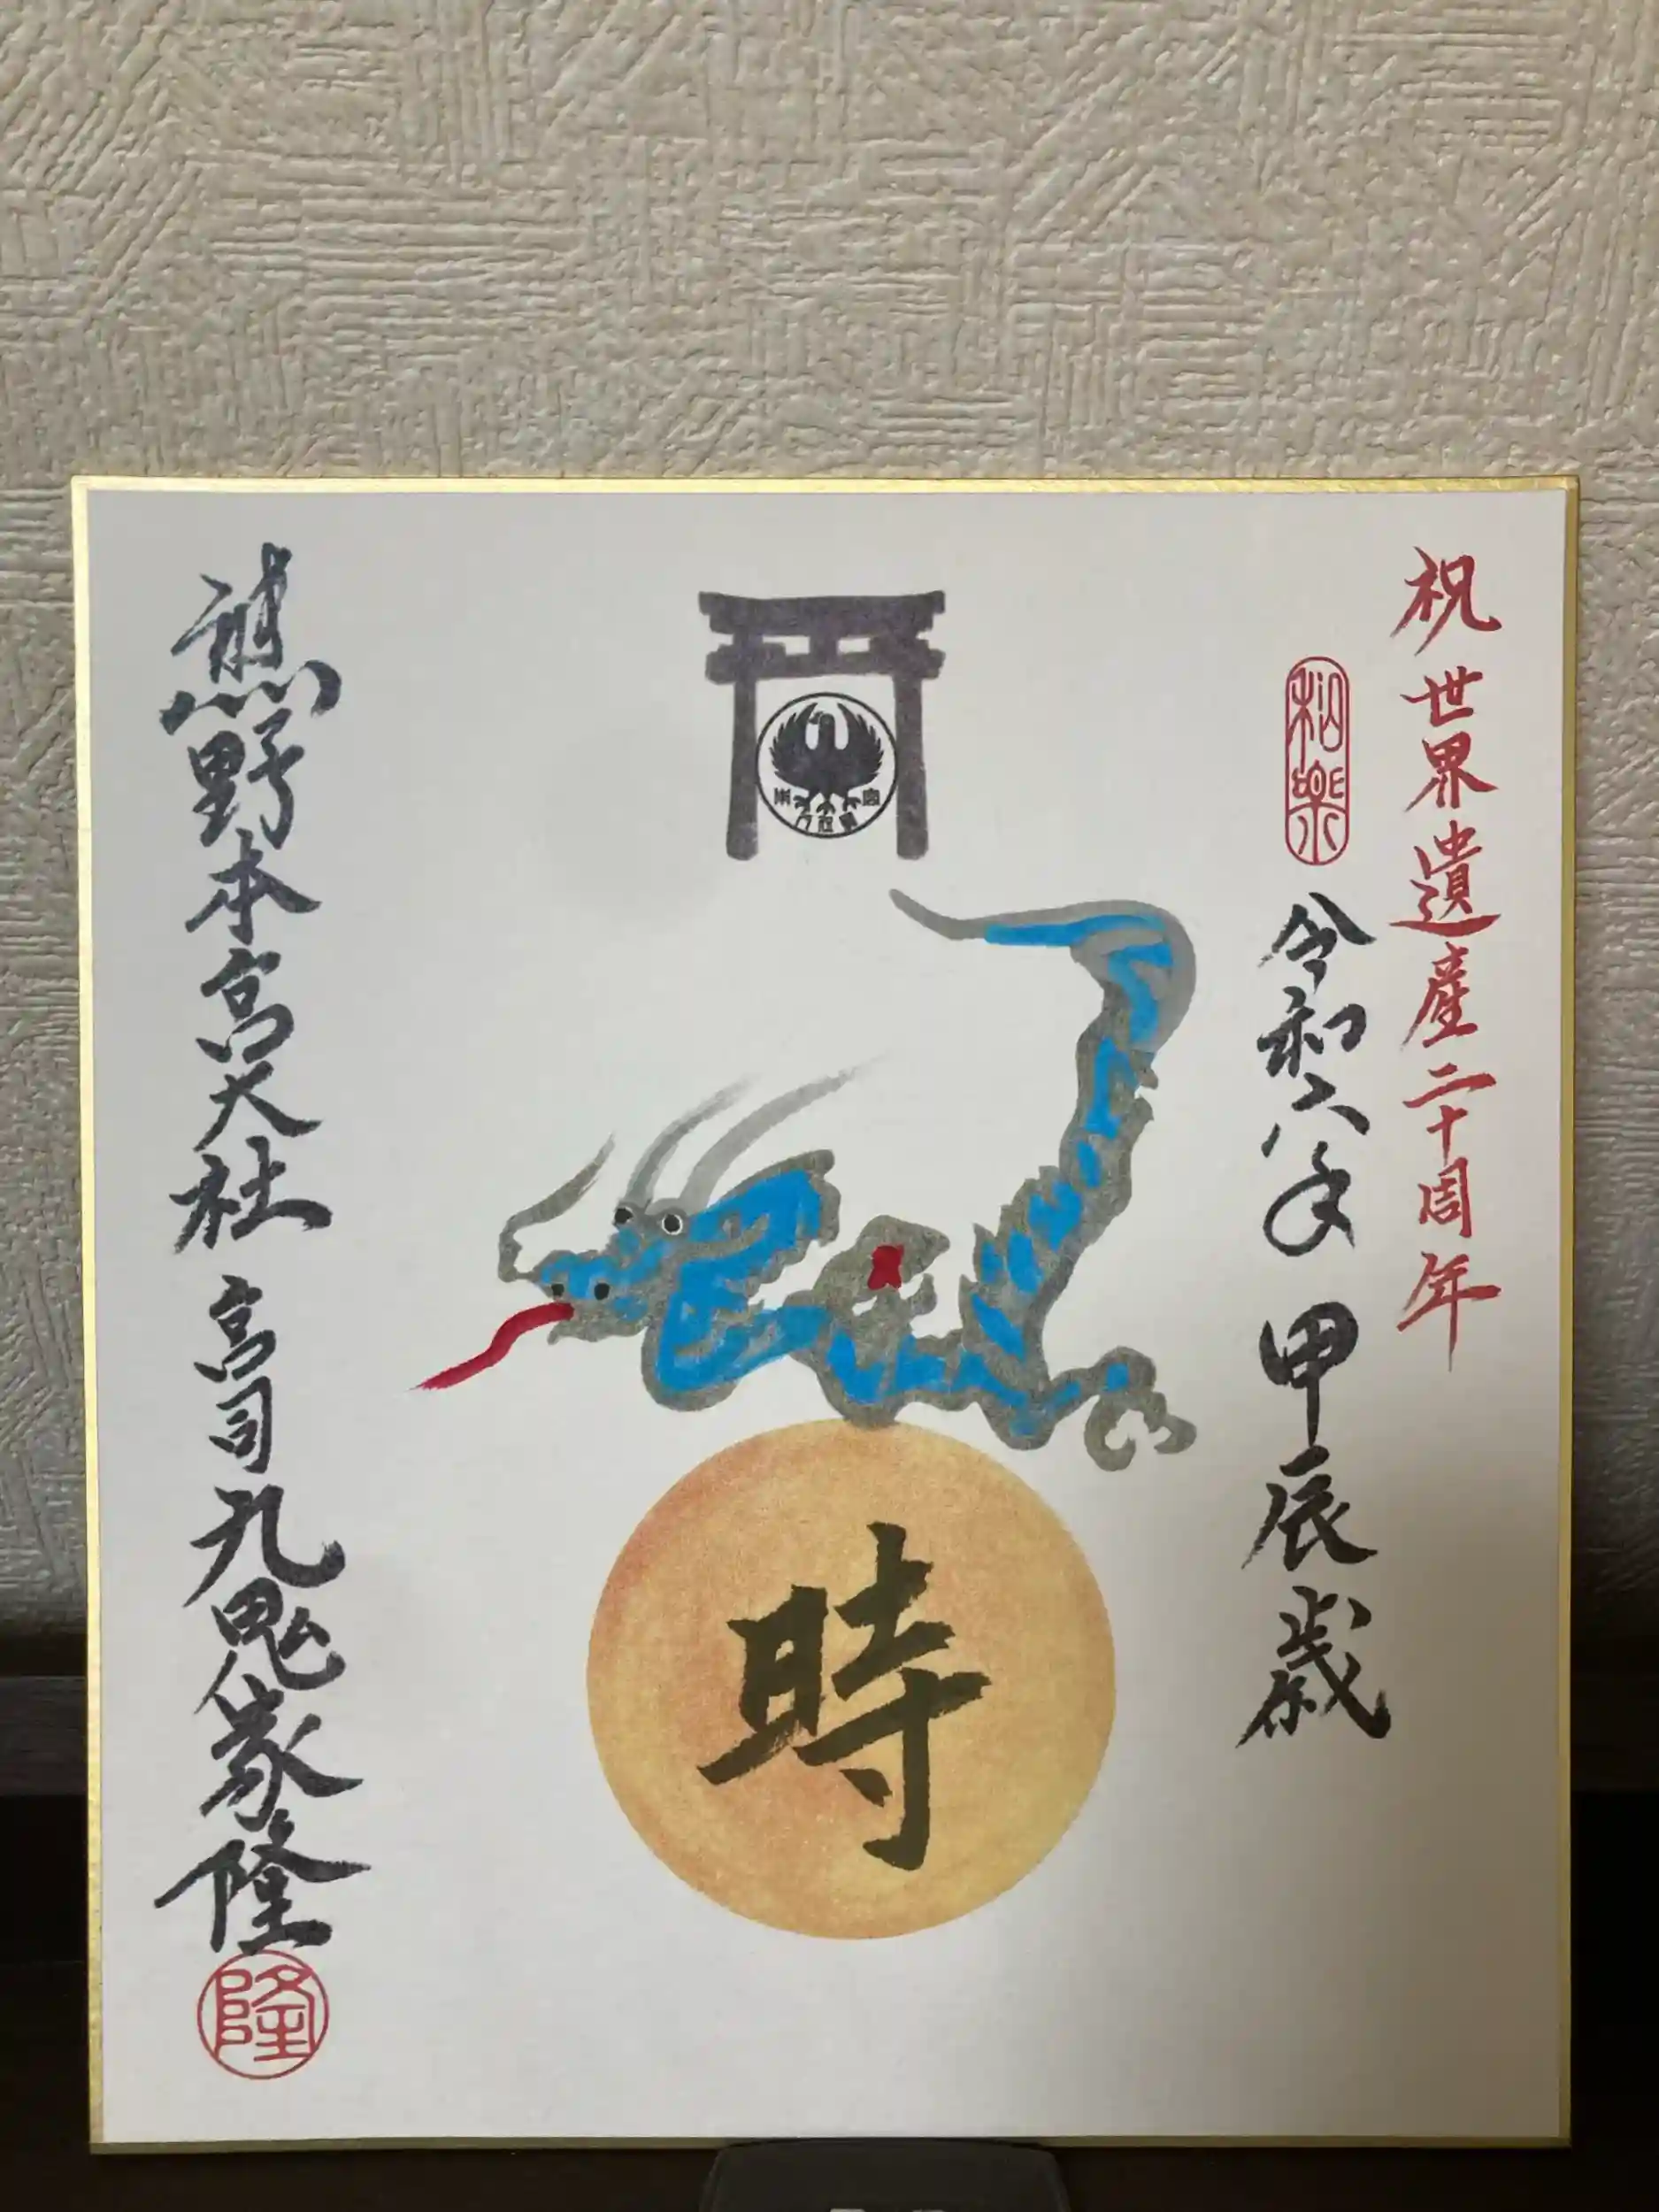 祝 世界遺産二十周年
和楽
令和六年 甲辰歳
時
熊野本宮大社 宮司 九鬼家隆
隆